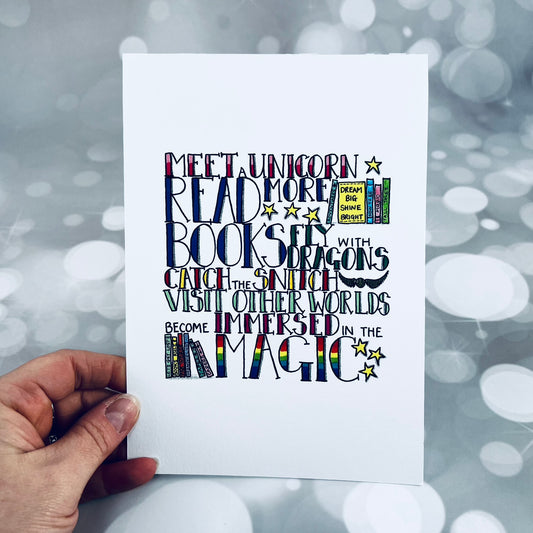 MEET A UNICORN
READ MORE
DREAM
BIG
SHINE
BRIGHT
BOOKS FLY WITH
DRAGONS
CATCH THE SNITCH
VISIT OTHER WORLDS
BECOME IMMERSED IN THE
MAGIC